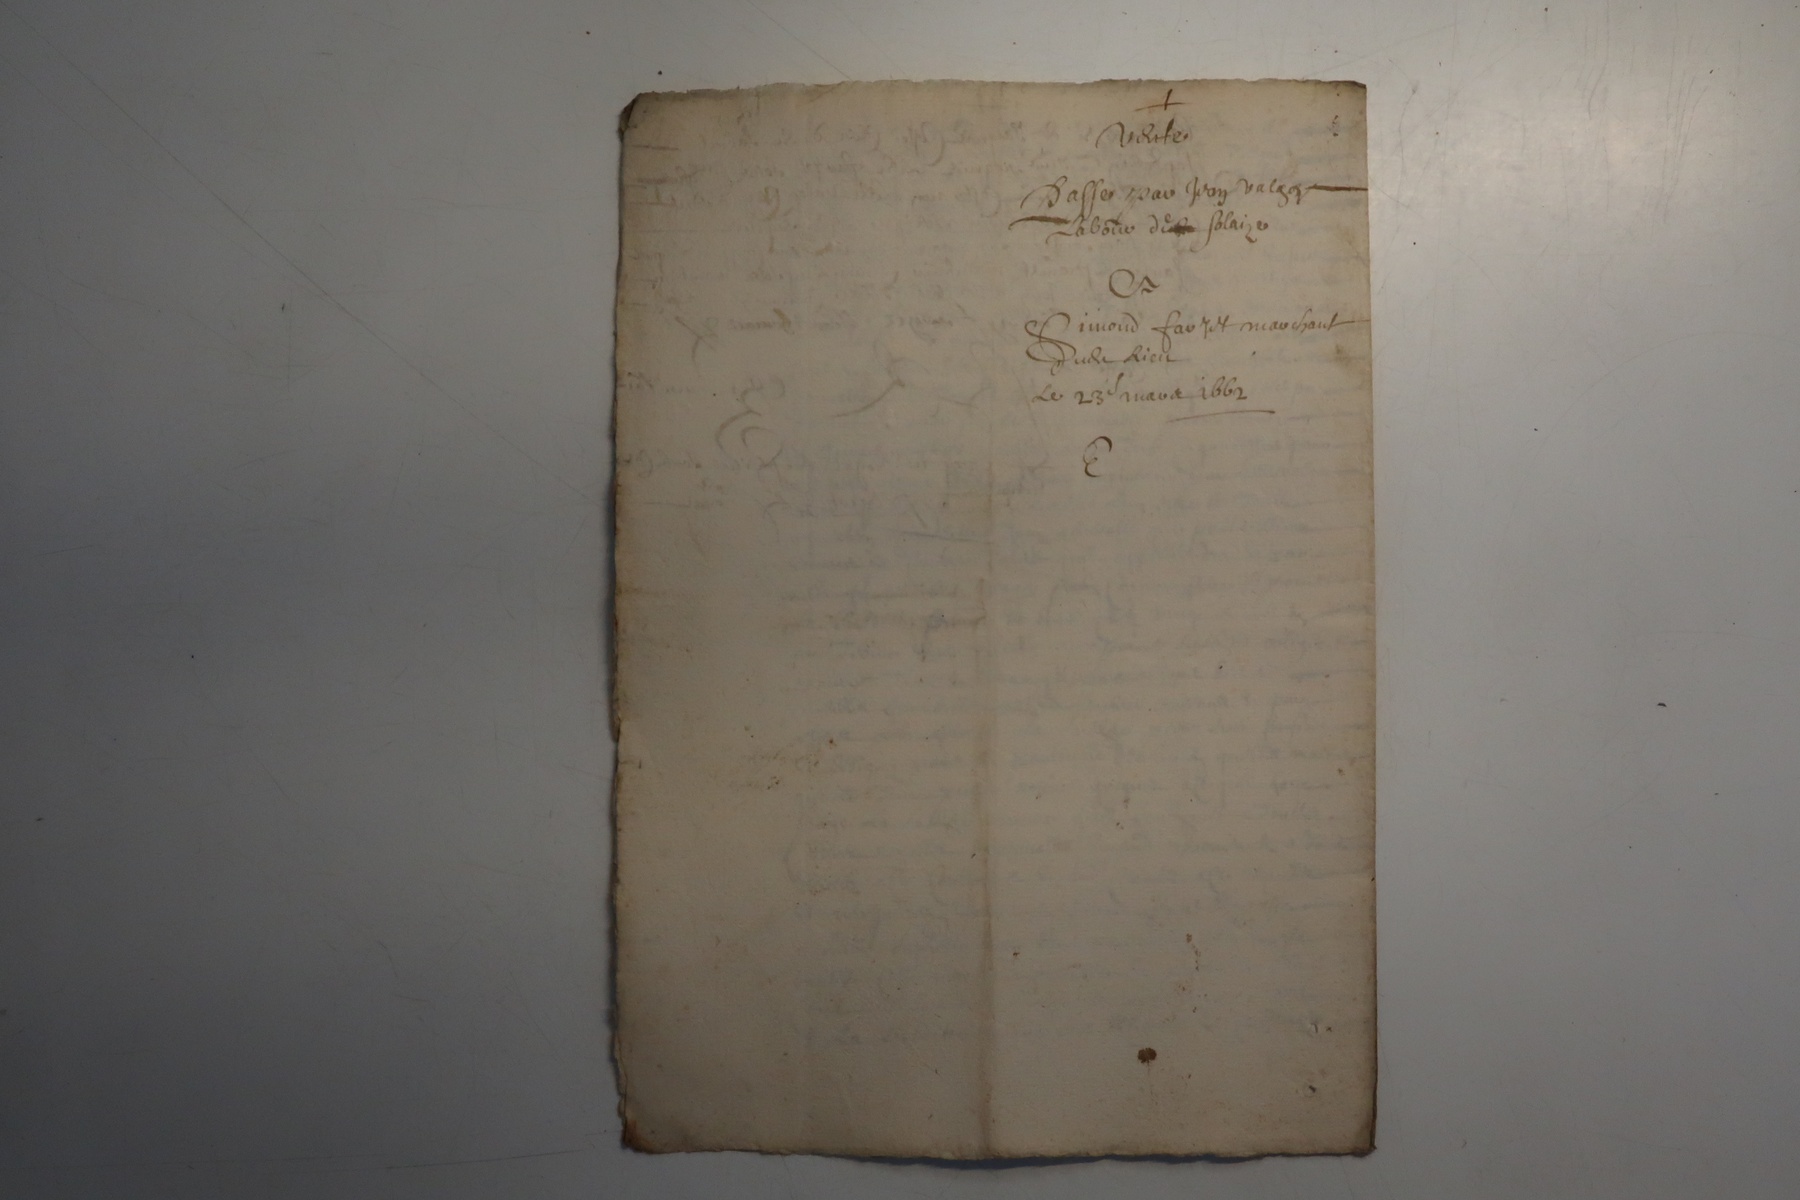 +
vente
Passee par Jean
Laboure de solaize
A
Simond farjot marchant
dudit lieu
Le 23e mars 1662
E